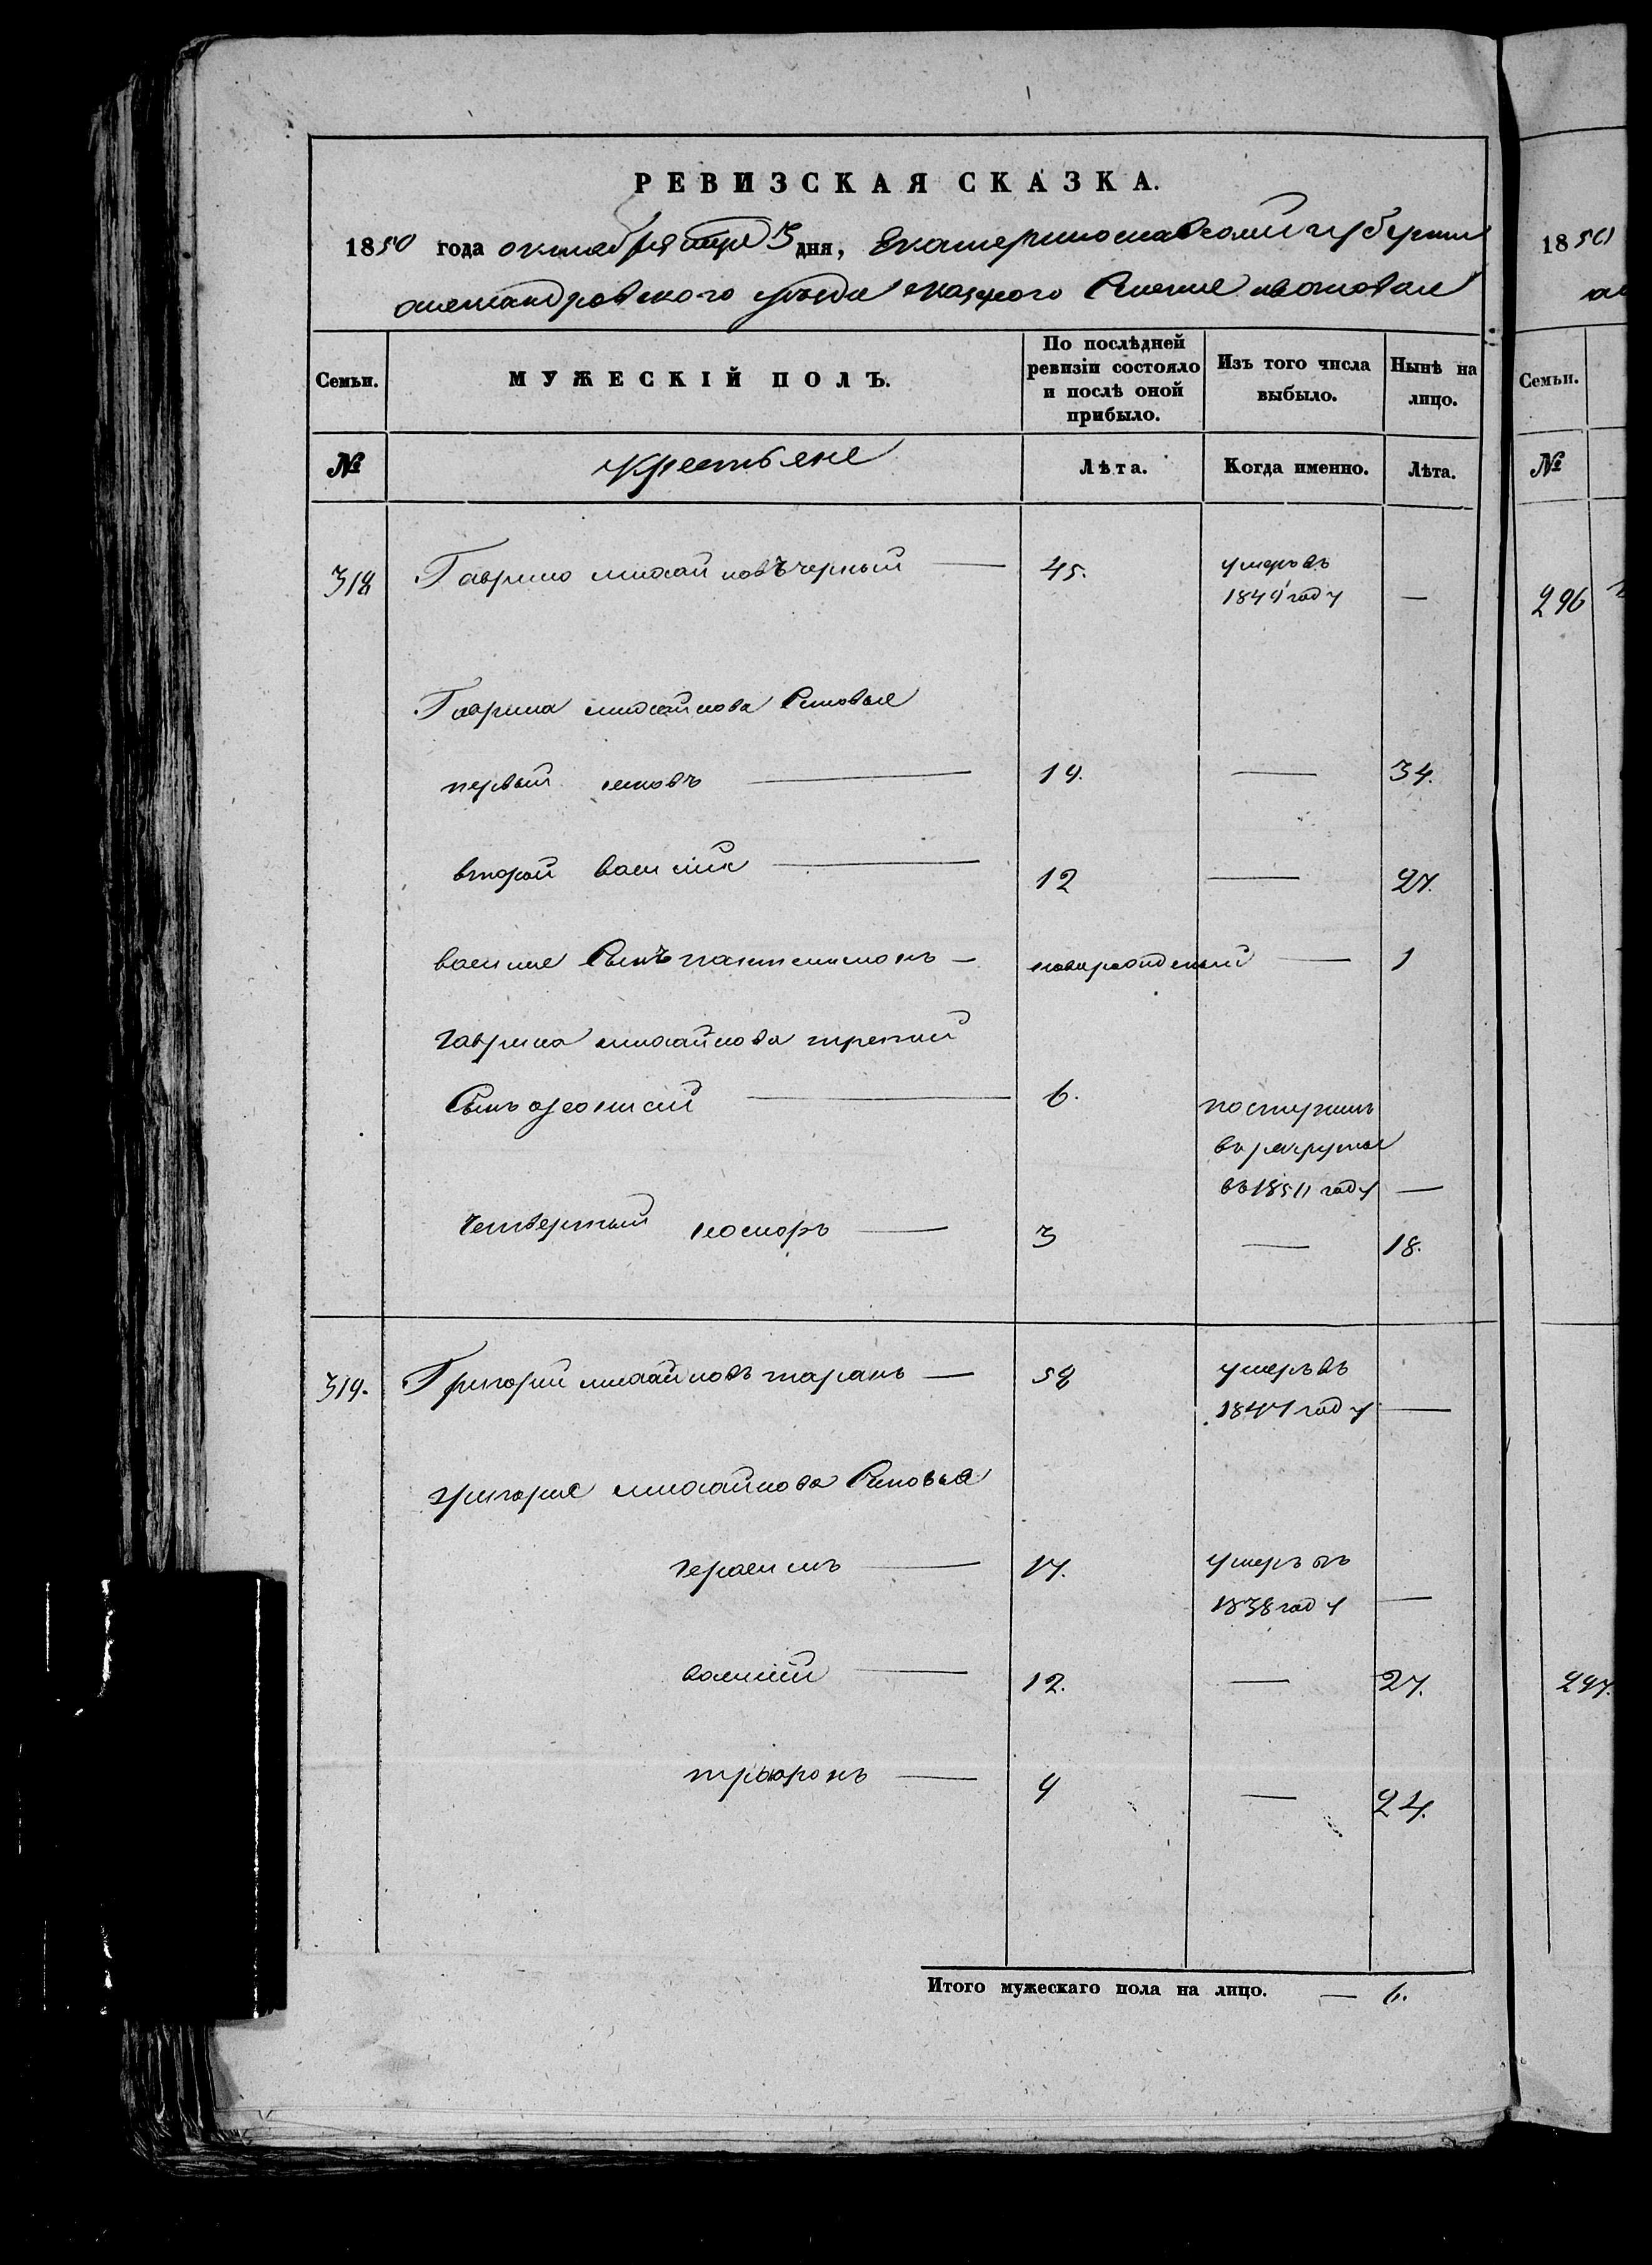 РЕВИЗСКАЯ СКАЗКА.
1850 года октября 3 дня, Екатеринославской губернии
александровского уезда казеного Селения
Семьи. МУЖЕСКІЙ ПОЛЪ. По послѣдней ревизіи состояло и послѣ оной прибыло. Изъ того числа выбыло. Нынѣ на лицо.
№ Крестьяне Лѣта. Когда именно. Лѣта.
318 Гаврило михайловъ черный — 45. умеръ въ
1849 году —
Гаврила михайлова Сыновья
первый — 19. — 34.
второй василій — 12 — 27.
василия Сынъ пантелимонъ — новорожденый — 1
гаврила михайлова третий
Сынъ — 6. поступилъ
въ рекруты
въ 1850 году —
Четвертый — 3 — 18.
319. Григорий михайловъ таранъ — 58 умеръ въ
1847 году —
григория михайлова Сыновья
герасимъ — 17. умеръ въ
1838 году —
василий — 12. — 27.
трофонъ — 9 — 24.
Итого мужескаго пола на лицо. — 6.
1850
Семьи.
№
296
297.